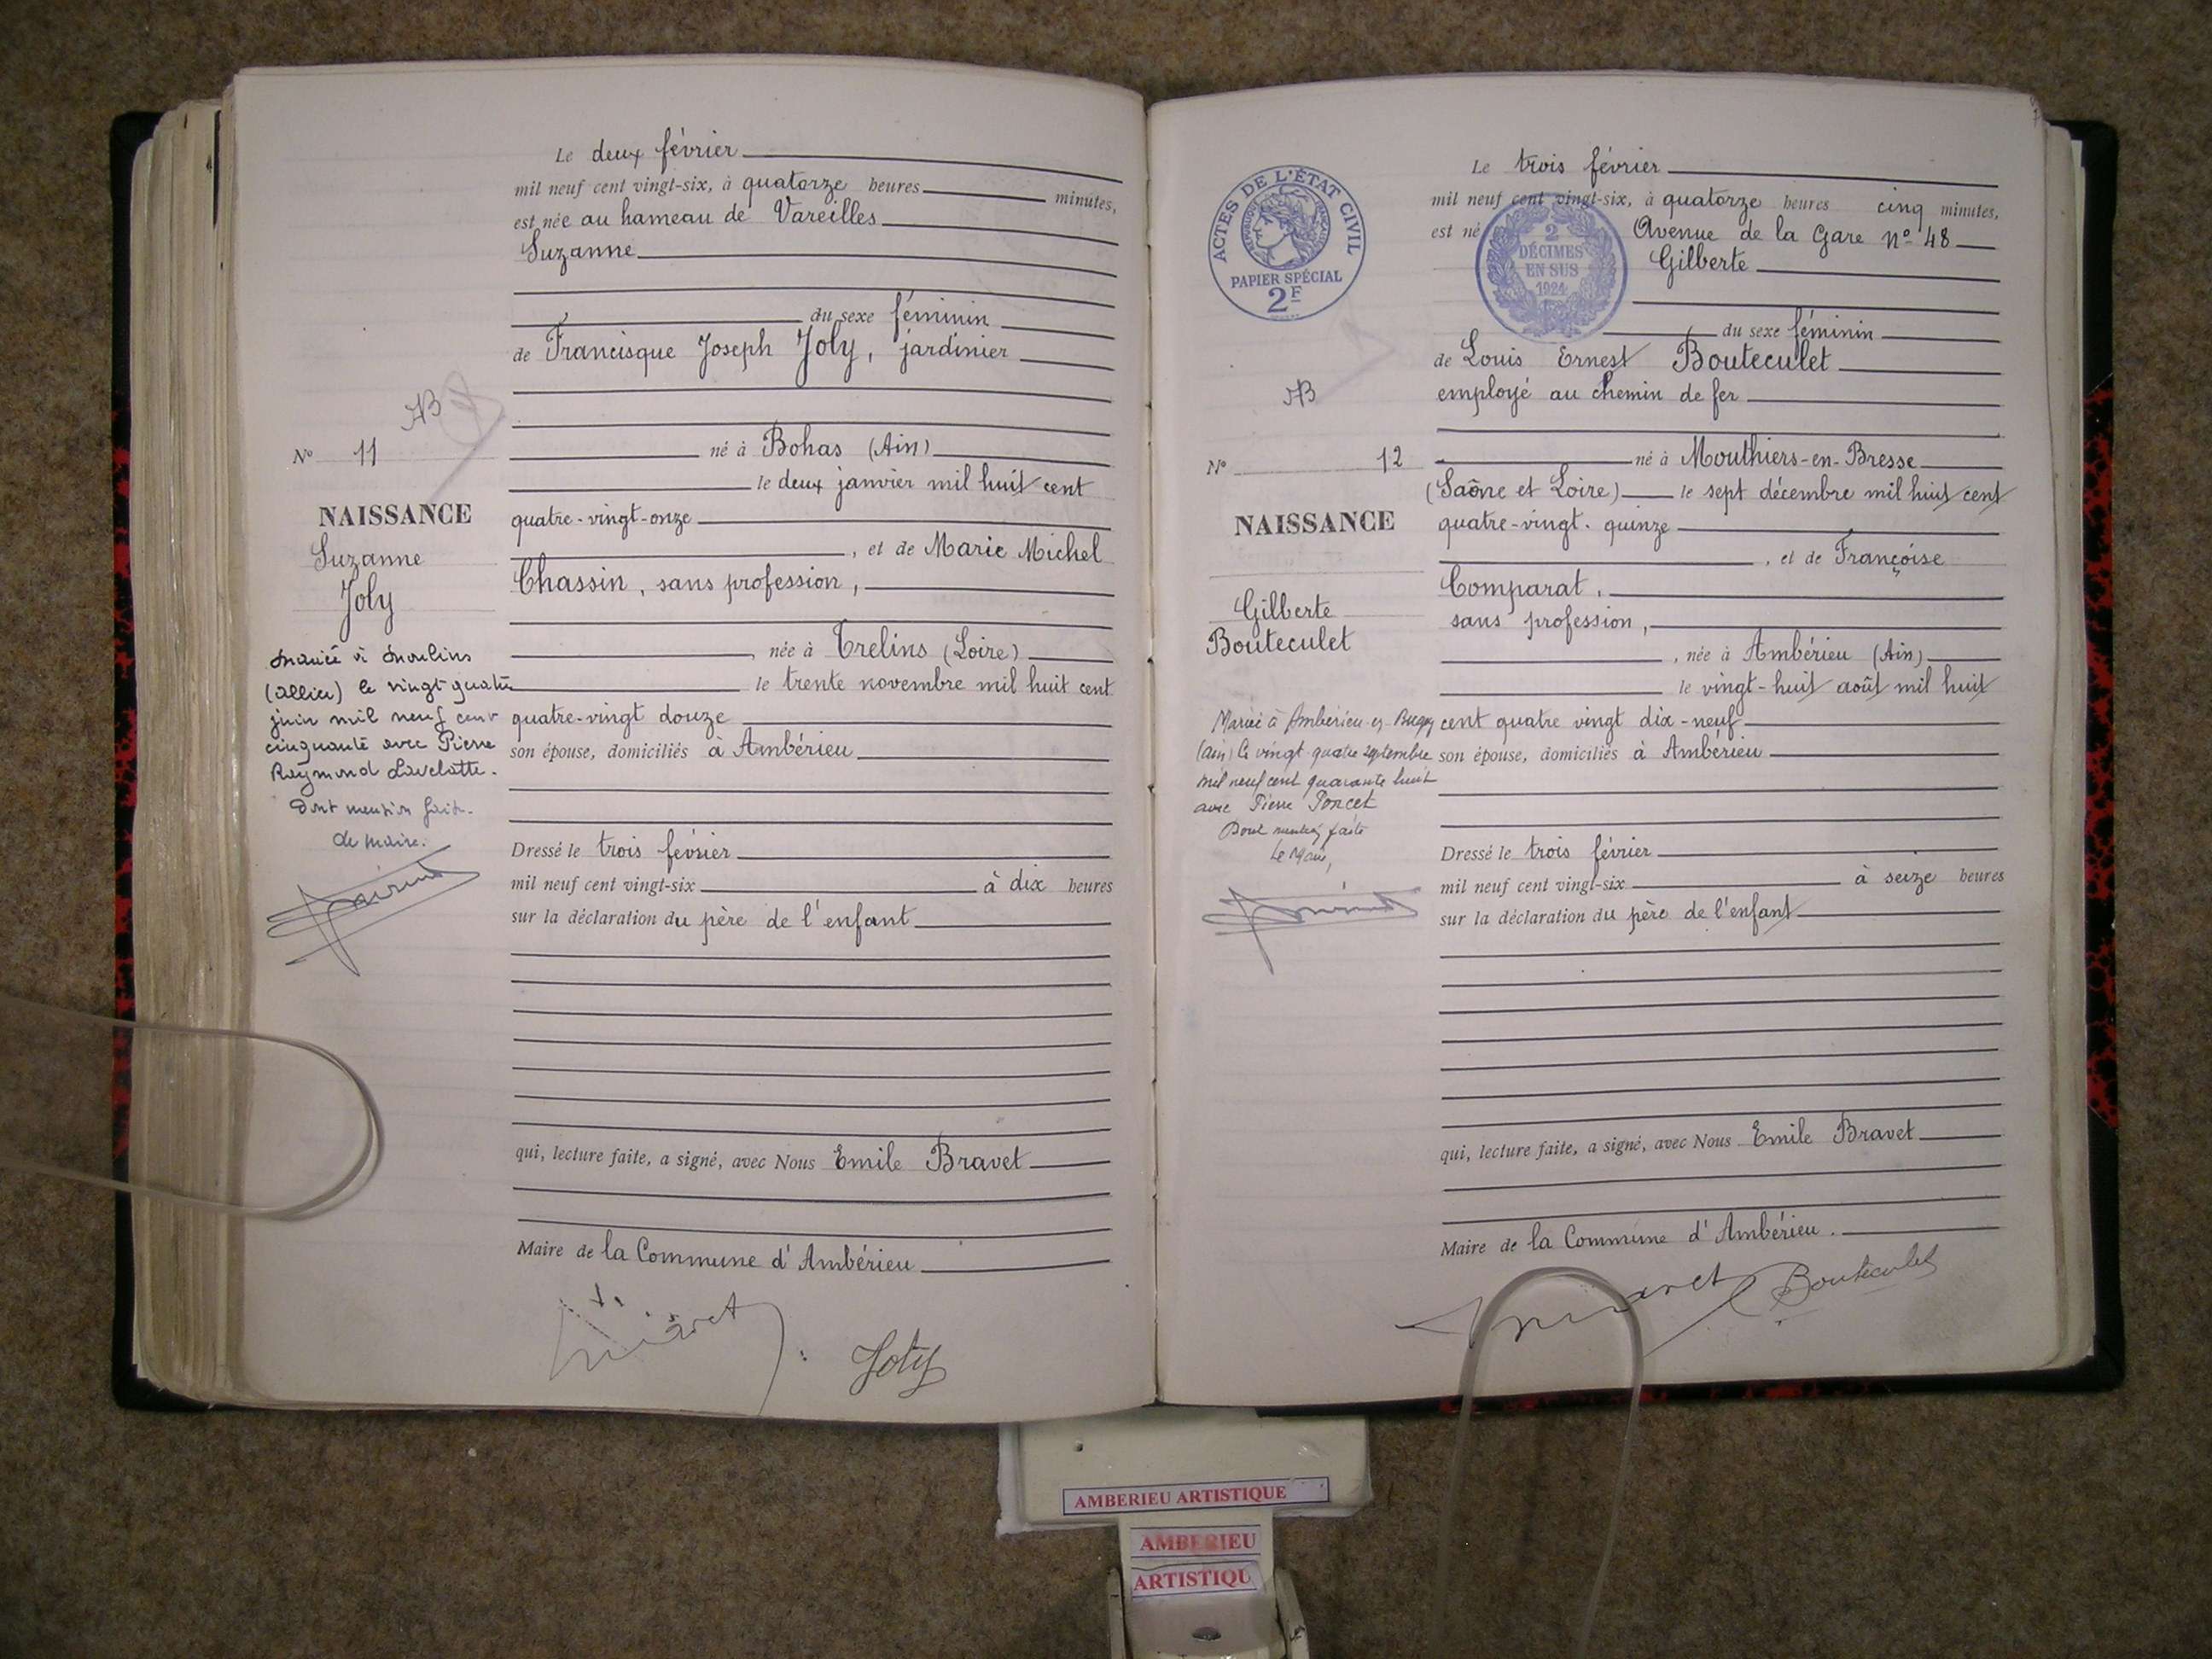 Le deux février
mil neuf cent vingt-six, à quatorze heures minutes,
est née au hameau de Vareilles
Suzanne
du sexe féminin
de Francisque Joseph Joly, jardinier
AB
né à Bohas (Ain)
N° 11
le deux janvier mil huit cent
NAISSANCE
quatre-vingt-onze
Suzanne
Joly
, et de Marie Michel
Chassin, sans profession,
, née à Trelins (Loire)
le trente novembre mil huit cent
quatre-vingt douze
son épouse, domiciliés à Ambérieu
mariée à Moulins
(Allier) le vingt quatre
juin mil neuf cent
cinquante avec Pierre
Raymond Lavelatte.
Dont mention faite.
Le maire.
Dressé le trois février
mil neuf cent vingt-six à dix heures
sur la déclaration du père de l'enfant
qui, lecture faite, a signé, avec Nous Emile Bravet
Maire de la Commune d'Ambérieu
Bravet
Joly
ACTES DE L'ÉTAT CIVIL
RÉPUBLIQUE FRANÇAISE
PAPIER SPÉCIAL
2F
2
DÉCIMES
EN SUS
1924
Le trois février
mil neuf cent vingt-six, à quatorze heures cinq minutes,
est né Avenue de la Gare N° 48
Gilberte
du sexe féminin
de Louis Ernest Bouteculet
employé au chemin de fer
AB
né à Mouthiers-en-Bresse
N° 12
(Saône et Loire) le sept décembre mil huit cent
NAISSANCE
quatre-vingt-quinze
Gilberte
Bouteculet
, et de Françoise
Comparat,
sans profession,
, née à Ambérieu (Ain)
le vingt-huit août mil huit
cent quatre vingt dix-neuf
son épouse, domiciliés à Ambérieu
Mariée à Ambérieu-en-Bugey
(Ain) le vingt quatre septembre
mil neuf cent quarante huit
avec Pierre Poncet
Dont mention faite
Le Maire,
Dressé le trois février
mil neuf cent vingt-six à seize heures
sur la déclaration du père de l'enfant
qui, lecture faite, a signé, avec Nous Emile Bravet
Maire de la Commune d'Ambérieu.
Bravet
Bouteculet
AMBERIEU ARTISTIQUE
AMBERIEU
ARTISTIQU